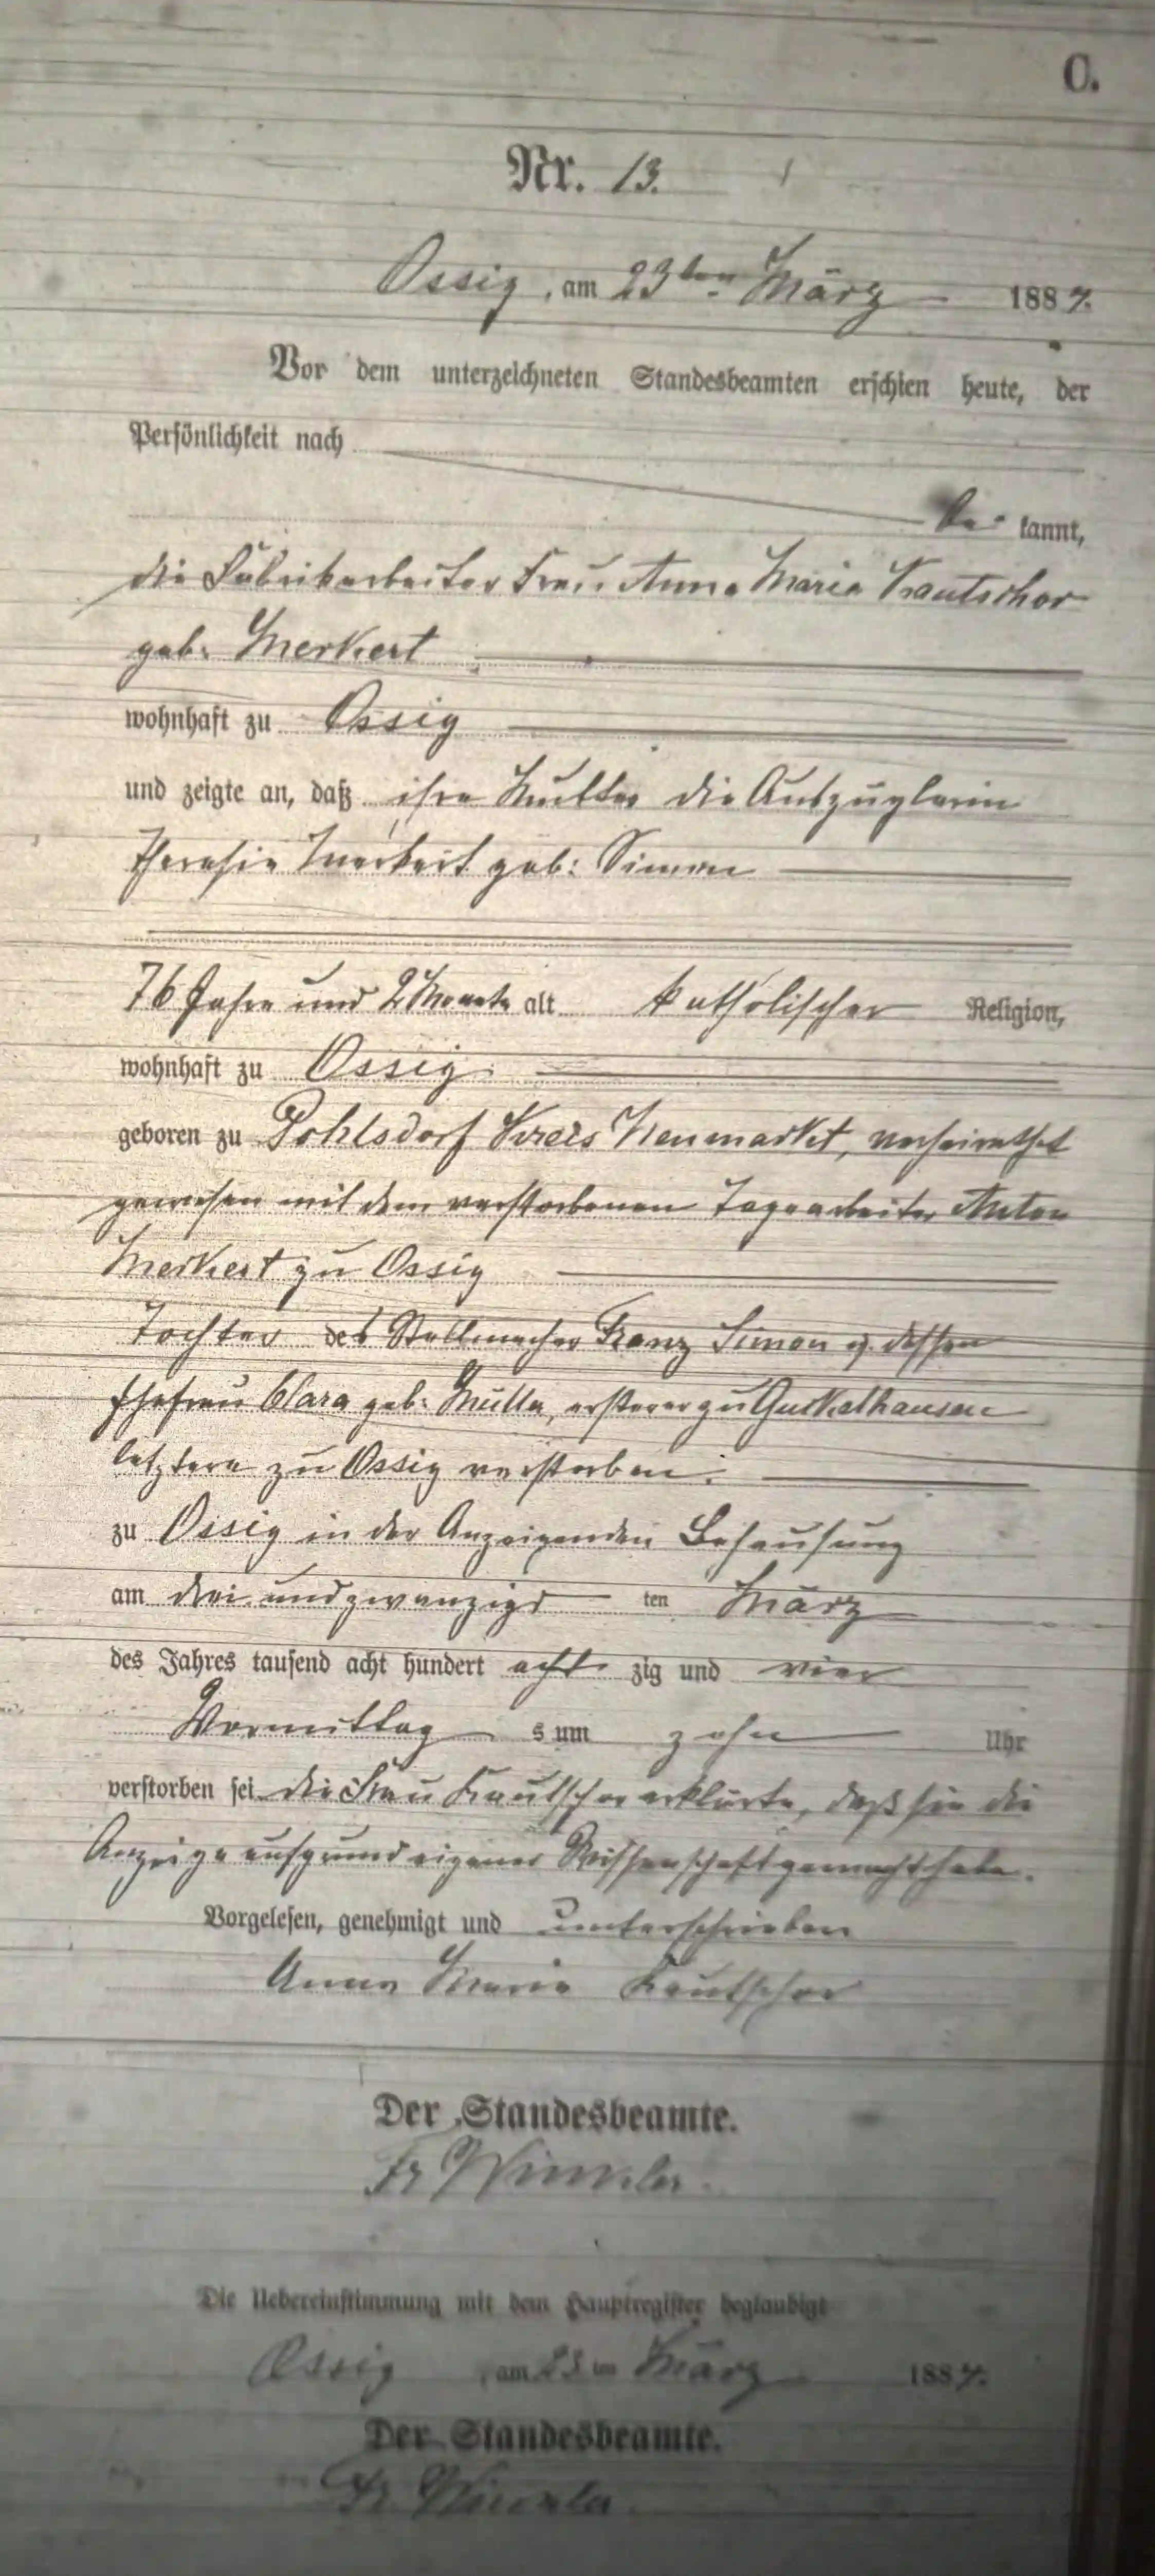 C.
Nr. 13.
Ossig, am 23ten März 1884.
Vor dem unterzeichneten Standesbeamten erschien heute, der
Persönlichkeit nach
be kannt,
die Fabrikarbeiter Frau Anna Maria Kautschor
geb: Merkert
wohnhaft zu Ossig
und zeigte an, daß ihre Mutter die Auszüglerin
Theresia Merkert geb: Simon
76 Jahre und 2 Monate alt katholischer Religion,
wohnhaft zu Ossig
geboren zu Pohlsdorf Kreis Neumarkt, verheirathet
gewesen mit dem verstorbenen Tagearbeiter Anton
Merkert zu Ossig
Tochter des Stellmacher Franz Simon u. dessen
Ehefrau Clara geb: Mülla, ersterer zu Guckelhausen
letztere zu Ossig verstorben.
zu Ossig in der Anzeigenden Behausung
am drei und zwanzigs ten März
des Jahres tausend acht hundert acht zig und vier
Vormittag s um zehn Uhr
verstorben sei die Frau Kautschor erklärte, daß sie die
Anzeige aufgrund eigener Wissenschaft gemacht habe.
Vorgelesen, genehmigt und unterschrieben
Anna Maria Kautschor
Der Standesbeamte.
Fr Winkler.
Die Uebereinstimmung mit dem Hauptregister beglaubigt
Ossig, am 23 ten März 1884.
Der Standesbeamte.
Fr Winkler.